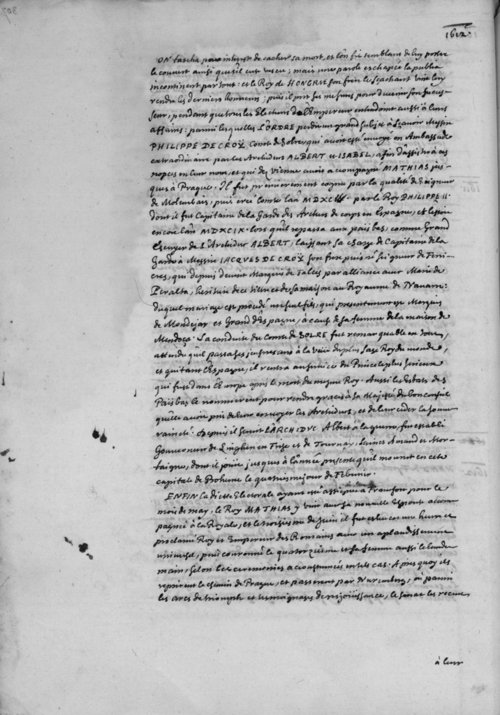 1612.
ON tascha pour interest de cacher sa mort, et l'on fit semblant de luy porter
le couvert ainsi que s'il eut vescu; mais une parole eschapée la publia
incontinent par tout: et le Roy de HONGRIE son frere le scachant vint luy
rendre les derniers honneurs; puis il prit ses mesures pour devenir son succes-
seur, pendant que tous les Electeurs de l'Empereur entendoient aussi à leurs
affaires: parmi lesquelles L'ORDRE perdit un grand subject à sçavoir Messire
PHILIPPE DE CROŸ, Comte de Solre, qui avoit esté envoyé en Ambassade
extraordinaire par les Archiducs ALBERT et ISABEL, afin d'assister à ces
nopces en leur nom, et qui de Vienne avoit accompagné MATHIAS jus-
ques à Prague. Il fut premierement cognu par la qualité de Seigneur
de Molembais, puis creé Comte l'an MDXCII par le Roy PHILIPPE II.
dont il fut Capitaine de la Garde des Archers de corps en Espagne; et l'estoit
encore l'an MDXCIX. lors qu'il repassa aux païs bas, comme Grand
Escuyer de l'Archiduc ALBERT, laissant sa charge de Capitaine de la
Garde à Messire JACQUES DE CROŸ son fils puisné Seigneur de
qui depuis devint Marquis de Falces par alliance avec Marie de
Peralta, heritiere de ce tiltre et de sa maison au Royaume de Navarre:
duquel mariage est procedé un seul fils, qui presentement est Marquis
de Mondejar et Grand d'Espagne, à cause de sa femme de la maison de
Mendoça. La conduite du Comte de SOLRE fut remarquable en
attendu qu'il passa ses jeunes ans à la veüe du plus sage Roy du monde,
et quittant l'Espagne, il rentra au service du Prince le plus serieux
qui fust dans l'Europe apres la mort du mesme Roy. Aussi les Estats des
Païs bas le nommerent pour rendre graces à Sa Majesté du bon conseil
qu'elle avoit pris de leur envoyer les Archiducs, et de leur ceder la souve-
raineté. Depuis il servit L'ARCHIDUC Albert à la guerre, fut establi
Gouverneur de Tournay, Saint Amand et Mor-
taigne, dont il jouit jusques à l'année presente qu'il mourut en cete
capitale de Boheme le quatriesme jour de Febvrier.
ENFIN la diete Electorale ayant esté assignée à Francfort pour le
mois de may, le Roy MATHIAS y vint avec sa nouvelle Espouse accom-
pagné à la Royale, et le troisiesme de Juin il fut esleu
proclamé Roy et Empereur des Romains avec un applaudissement
universel, puis couronné le quatorzieme et sa femme aussi le lende-
main, selon les ceremonies accoustumées en tels cas. Apres quoy ils
reprirent le chemin de Prague, et passerent par Nuremberg, où parmi
les arcs de triomph et tesmoignages de resjouissance, le senat les receut
à leur